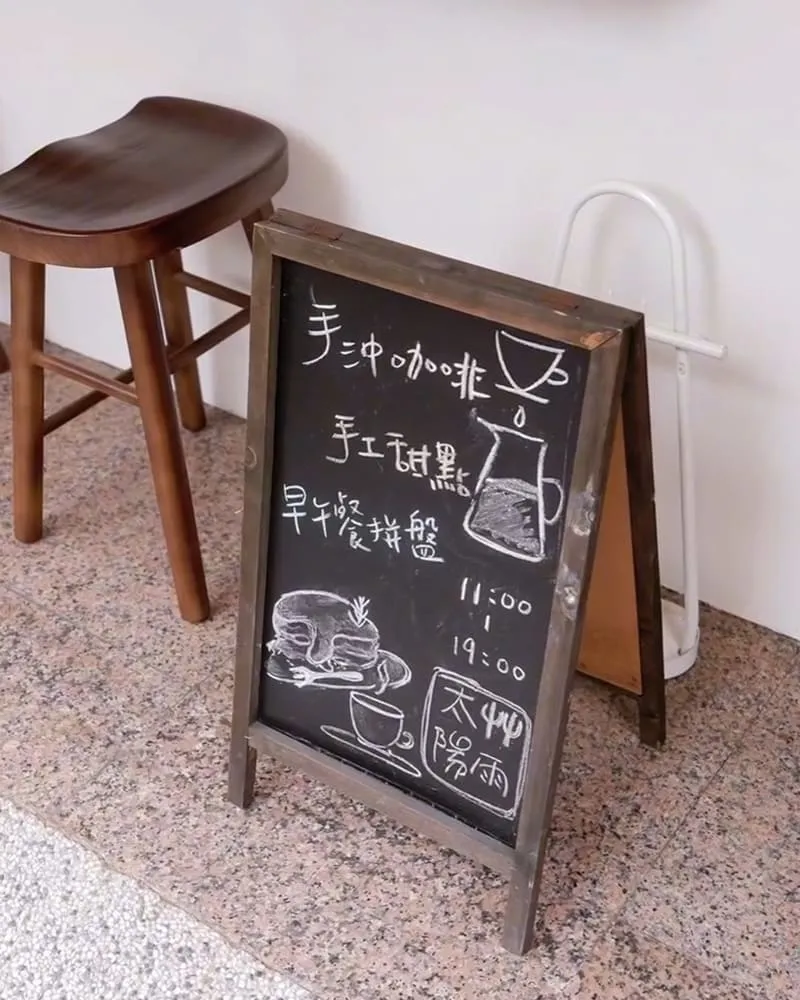 手沖咖啡
手工甜點
早午餐拼盤
11:00
|
19:00
太陽
艸雨